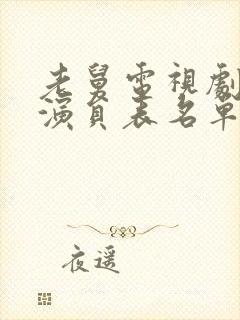 老舅電視劇
演員表名單
夜遥